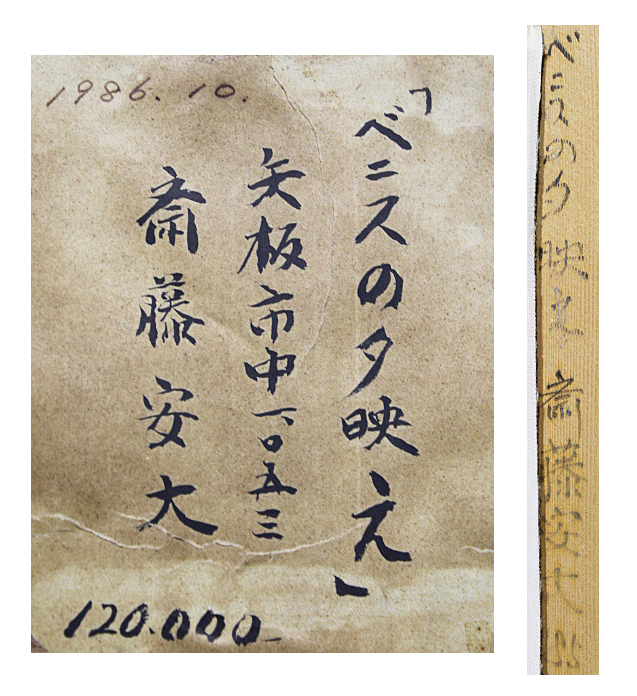 1986. 10.
「ベニスの夕映え」
矢板市中一、〇五三
斎藤安大
120.000
ベニスの夕映え 斎藤安大